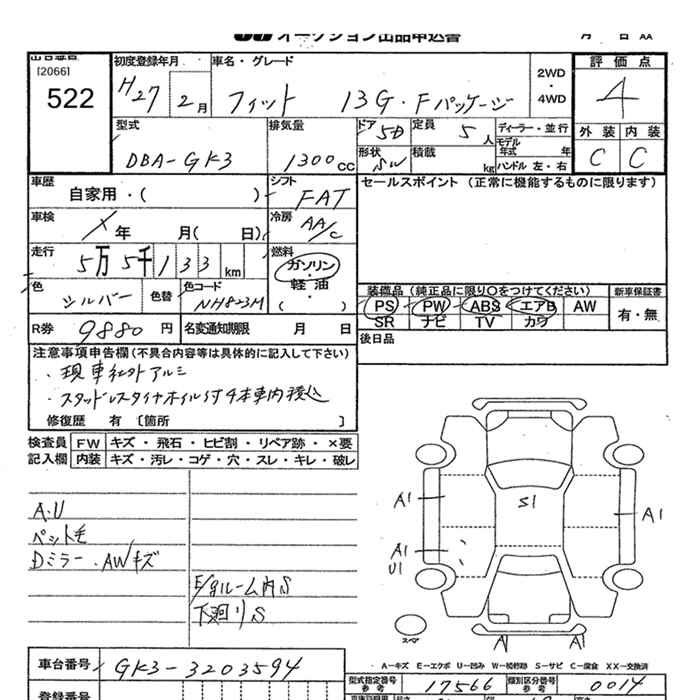 オークション出品申込書
月 日
出品番号 初度登録年月 車名・グレード 評価点
[2066]
522 H27 2月 フィット 13G・Fパッケージ 2WD・4WD 4
型式 排気量 ドア 5D 定員 5人 ディーラー・並行 外装 内装
モデル年式 年
DBA-GK3 1300cc 形状 SW 積載 kg ハンドル 左・右 C C
車歴 シフト セールスポイント (正常に機能するものに限ります)
自家用・( ) FAT
車検 冷房
X年 月( 日) AA/C
走行 燃料
5万5千133km ガソリン・軽油・( )
色 色替 色コード 装備品 (純正品に限り○をつけてください) 新車保証書
シルバー NH823M PS PW ABS エアB AW 有・無
SR ナビ TV カワ
R券 9880円 名変通知期限 月 日
後日品
注意事項申告欄(不具合内容等は具体的に記入して下さい)
・現車社外アルミ
・スタッドレスタイヤホイル付4本車内積込
修復歴 有 〔箇所 〕
検査員 FW キズ・飛石・ヒビ割・リペア跡・×要
記入欄 内装 キズ・汚レ・コゲ・穴・スレ・キレ・破レ
A.U
ペット毛
Dミラー.AWキズ
E/gルーム内S
下廻りS
S1
A1
A1
A1
U1
スペア
A A
A-キズ E-エクボ U-凹み W-補修跡 S-サビ C-腐食 XX-交換済
車台番号 GK3-3203594
型式指定番号 参考 17566 類別区分番号 参考 0014
登録番号